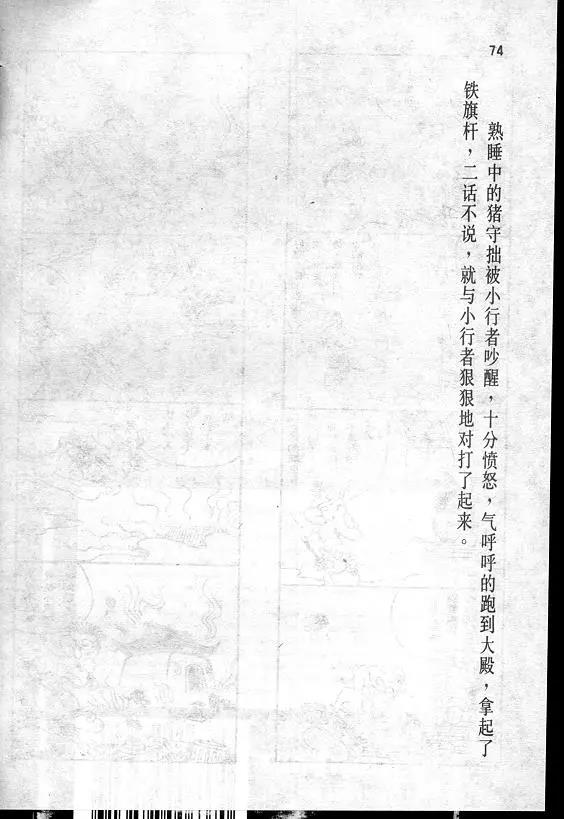 74
熟睡中的猪守拙被小行者吵醒，十分愤怒，气呼呼的跑到大殿，拿起了
铁旗杆，二话不说，就与小行者狠狠地对打了起来。